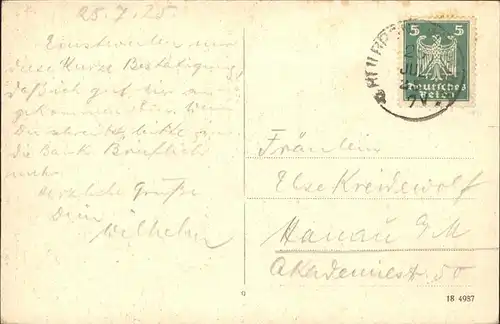 25.7.25.
Einstweilen nur
diese kurze Bestätigung,
daß ich gut hier an-
gekommen bin. Wenn
Du schreibst, bitte
die Bank
Herzliche Grüße
Dein
Wilhelm
5 5
Deutsches
Reich
JUL
Fräulein
Else Kreidewolf
Hanau a/M
Akademiestr. 50
18 4987